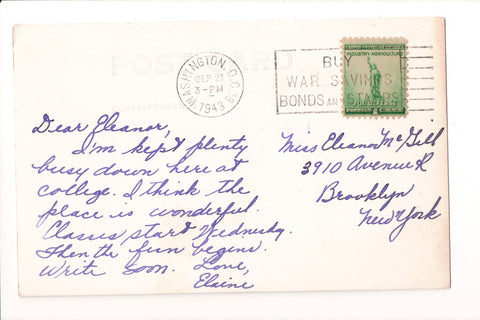 POST CARD
CORRESPONDENCE
WASHINGTON, D.C.
SEP 21
3-PM
1943
BUY
WAR SAVINGS
BONDS AND STAMPS
INDUSTRY-AGRICULTURE
FOR DEFENSE
Dear Eleanor,
I'm kept plenty
busy down here at
college. I think the
place is wonderful.
Classes start Wednesday.
Then the fun begins.
Write soon. Love,
Elaine
Miss Eleanor McGill
3910 Avenue R
Brooklyn
New York